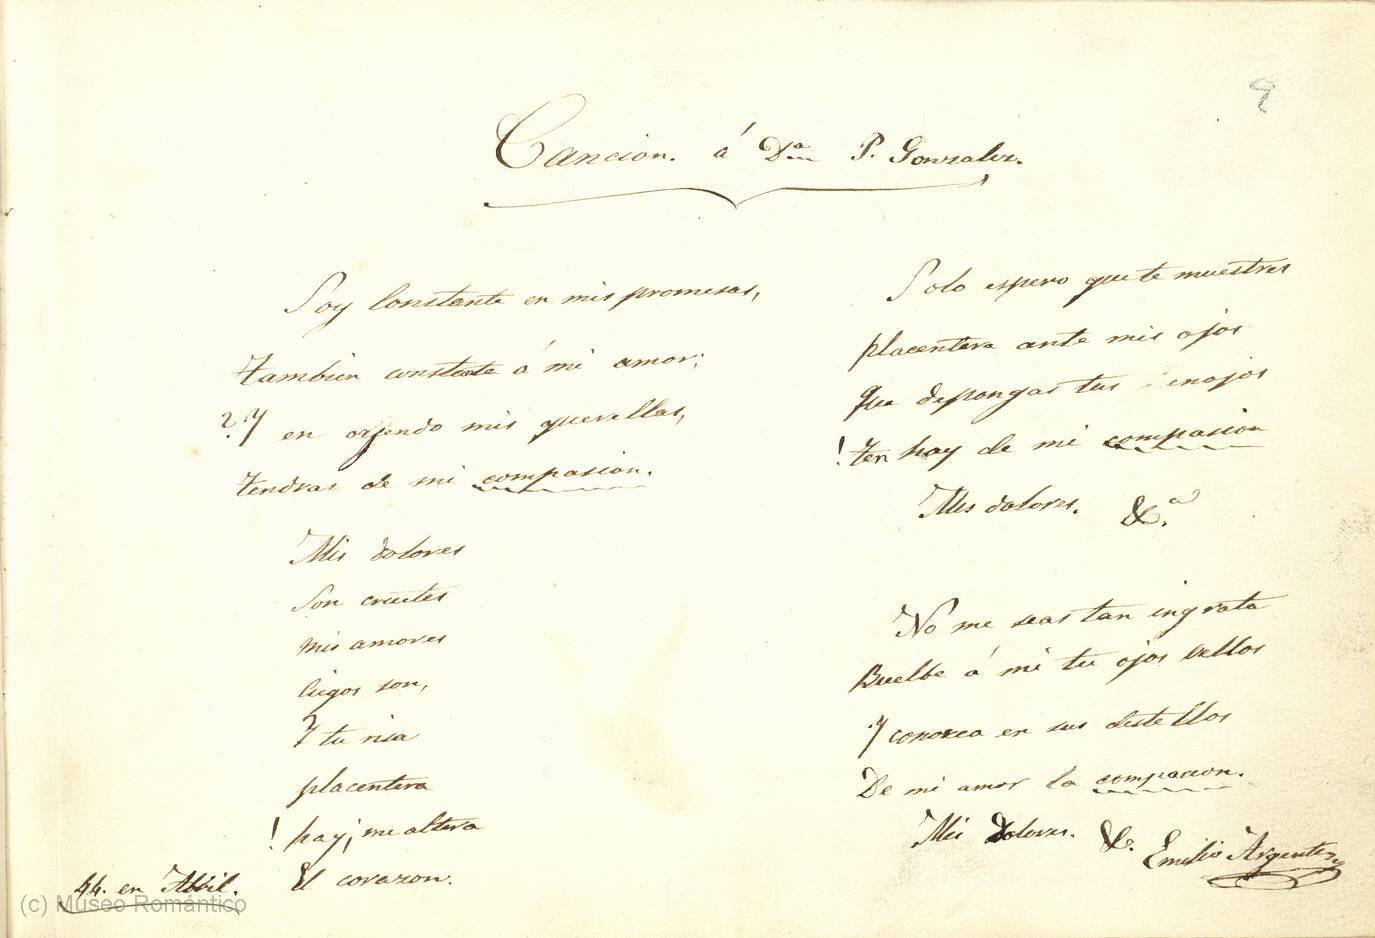 9
Cancion. á Dª P. Gonzalez.
Soy Constante en mis promesas,
tambien constante á mi amor;
?Y en oyendo mis querellas,
tendras de mi compasion.
Mis dolores
Son crueles
mis amores
Ciegos son,
Y tu risa
placentera
! hay ¡ me altera
El corazon.
44. en Abril.
Solo espero que te muestres
placentera ante mis ojos
Que depongas tus enojos
! ten hay de mi compasion
Mis dolores. &.ª
No me seas tan ingrata
Buelbe á mi tu ojos bellos
Y conozca en sus destellos
De mi amor la compacion.
Mis dolores. &.
Emilio Argentero
(c) Museo Romántico